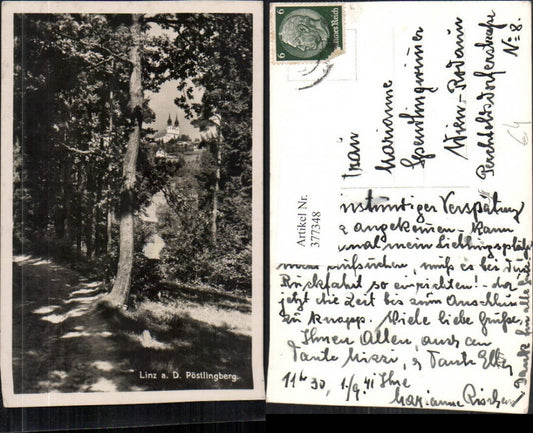 Linz a. D. Pöstlingberg.
6 Deutsches Reich 6
Artikel Nr.
377348
Frau
Marianne
Spendlingwimmer
Wien-Rodaun
Perchtoldsdorferstraße
No 8.
64
nstündiger Verspätung
angekommen - kann
mal mein Lieblingsplätz
aufsuchen, muß es bei der
Rückfahrt so einrichten! - da
jetzt die Zeit bis zum Anschluß
zu knapp. Viele liebe Grüße,
Ihnen Allen, auch an
Tante Mizzi, & Tante Elly
11h 30, 1/9. 41 Ihre
Marianne
Danke für alle